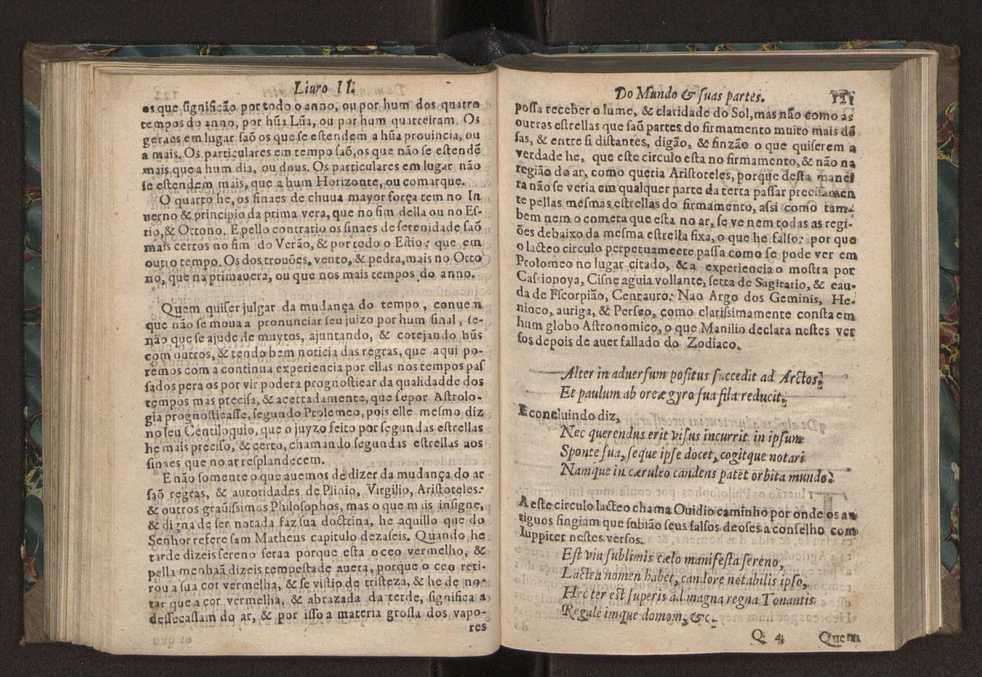 Liuro II.
os que significão por todo o anno, ou por hum dos quatro
tempos do anno, por hũa Lũa, ou por hum quarteiram. Os
geraes em lugar saõ os que se estendem a hũa prouincia, ou
a mais. Os particulares em tempo saõ, os que não se estendẽ
mais que a hum dia, ou dous. Os particulares em lugar não
se estendem mais, que a hum Horizonte, ou comarque.
O quarto he, os sinaes de chuua mayor força tem no In
uerno & principio da prima vera, que no fim della ou no Es-
tio, & Ottono. E pello contratio os sinaes de serenidade saõ
mais certos no fim do Verão, & por todo o Estio: que em
outro tempo. Os dos trouões, vento, & pedra, mais no Otto
no, que na primauera, ou que nos mais tempos do anno.
Quem quiser julgar da mudança do tempo, conuem
que não se moua a pronunciar seu juizo por hum sinal, se-
não que se ajude de muytos, ajuntando, & cotejando hũs
com outros, & tendo bem noticia das regras, que aqui po-
remos com a continua experiencia por ellas nos tempos pas
sados pera os por vir podera prognosticar da qualidadde dos
tempos mais precisa, & acertadamente, que se por Astrolo-
gia prognosticasse, segundo Ptolemeo, pois elle mesmo diz
no seu Centiloquio, que o juyzo feito por segundas estrellas
he mais preciso, & certo, chamando segundas estrellas aos
sinaes que no ar resplandecem.
E não somente o que auemos de dizer da mudança do ar
saõ regras, & autoridades de Plinio, Virgilio, Aristoteles:
& outros grauissimos Philosophos, mas o que mais insigne,
& digna de ser notada faz sua doctrina, he aquillo que do
Senhor refere sam Matheus capitulo dezaseis. Quando he
tarde dizeis sereno seraa porque esta o ceo vermelho, &
pella menhaã dizeis tempestade auera, porque o ceo reti-
rou a sua cor vermelha, & se vistio de tristeza, & he de no-
tar que a cor vermelha, & abrazada da terde, significa a
dessecassam do ar, & por isso a materia grossa dos vapo-
res
Do Mundo & suas partes.
possa receber o lume, & claridade do Sol, mas não como as
outras estrellas que saõ partes do firmamento muito mais dẽ
sas, & entre si distantes, digão, & finzão o que quiserem a
verdade he, que este circulo esta no firmamento, & não na
região do ar, como queria Aristoteles, porque desta manei
ra não se veria em qualquer parte da terra passar precisamen
te pellas mesmas estrellas do firmamento, assi como tam-
bem nem o cometa que esta no ar, se ve nem todas as regi-
ões debaixo da mesma estrella fixa, o que he falso: por que
o lacteo circulo perpetuameete passa como se pode ver em
Ptolomeo no lugar citado, & a experiencia o mostra por
Cassiopoya, Cisne aguia vollante, setta de Sagitario, & cau-
da de Escorpião, Centauro: Nao Argo dos Geminis, He-
nioco, auriga, & Perseo, como clarissimamente consta em
hum globo Astronomico, o que Manilio declara nestes ver
sos depois de auer fallado do Zodiaco.
Alter in aduersum positus succedit ad Arctos,
Et paulum ab oreæ gyro sua fila reducit,
E concluindo diz,
Nec querendus erit visus incurrit in ipsum
Sponte sua, seque ipse docet, cogitque notari
Namque in cæruleo candens patet orbita mundo.
A este circulo lacteo chama Ouidio caminho por onde os an
tiguos fingiam que subião seus falsos deoses a conselho com
Iuppiter nestes versos.
Est via sublimis cælo manifesta sereno,
Lactea nomen habet, candore notabilis ipso,
Hec ter est superis ad magna regna Tonantis
Regale imque domom, &c.
Q 4 Quem